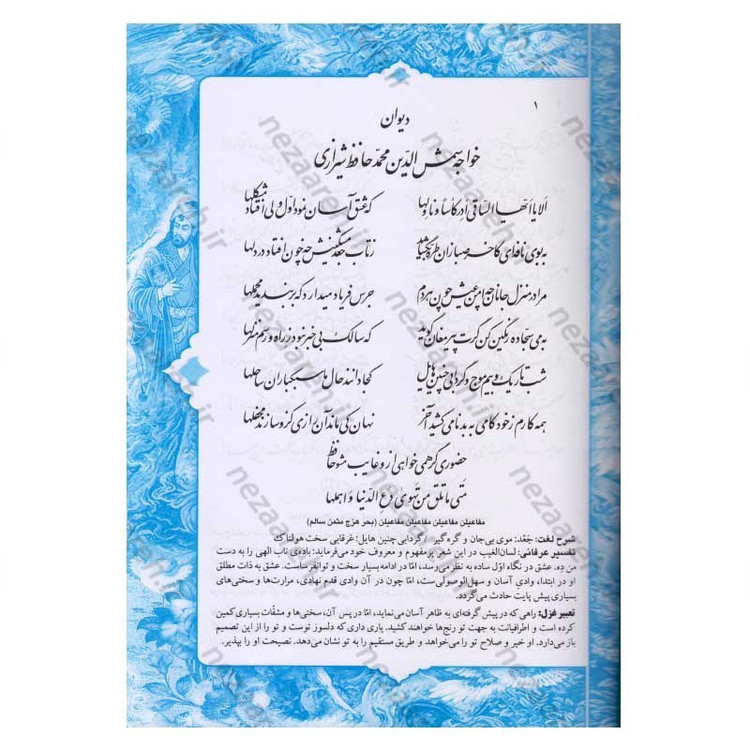 ۱
دیوان
خواجه شمس الدین محمد حافظ شیرازی
الا یا ایها الساقی ادر کاسا و ناولها که عشق آسان نمود اول ولی افتاد مشکلها
به بوی نافه‌ای کاخر صبا زان طره بگشاید ز تاب جعد مشکینش چه خون افتاد در دلها
مرا در منزل جانان چه امن عیش چون هر دم جرس فریاد می‌دارد که بربندید محملها
به می سجاده رنگین کن گرت پیر مغان گوید که سالک بی‌خبر نبود ز راه و رسم منزلها
شب تاریک و بیم موج و گردابی چنین هایل کجا دانند حال ما سبکباران ساحلها
همه کارم ز خود کامی به بدنامی کشید آخر نهان کی ماند آن رازی کزو سازند محفلها
حضوری گر همی خواهی از و غایب مشو حافظ
متی ما تلق من تهوی دع الدنیا و اهملها
مفاعیلن مفاعیلن مفاعیلن مفاعیلن (بحر هزج مثمن سالم)
شرح لغت: جَعْد: موی پی‌جان و گره‌گیر / گردابی چنین هایل: غرقابی سخت هولناک
تفسیر عرفانی: لسان‌الغیب در این شعر پرمفهوم و معروف خود می‌فرماید: باده‌ی ناب الهی را به دست
من ده. عشق در نگاه اوّل ساده به نظر می‌رسد، امّا در ادامه بسیار سخت و توانفرساست. عشق به ذات مطلق
او در ابتدا، وادی آسان و سهل‌الوصولی‌ست، امّا چون در آن وادی قدم نهادی، مرارت‌ها و سختی‌های
بسیاری پیش پایت حادث می‌گردد.
تعبیر غزل: راهی که در پیش گرفته‌ای به ظاهر آسان می‌نماید، امّا در پس آن، سختی‌ها و مشقّات بسیاری کمین
کرده است و اطرافیانت به جهت تو رنج‌ها خواهند کشید. یاری داری که دلسوز توست و تو را از این تصمیم
باز می‌دارد. او خیر و صلاح تو را می‌خواهد و طریق مستقیم را به تو نشان می‌دهد. نصیحت او را بپذیر.
nezaareh.ir